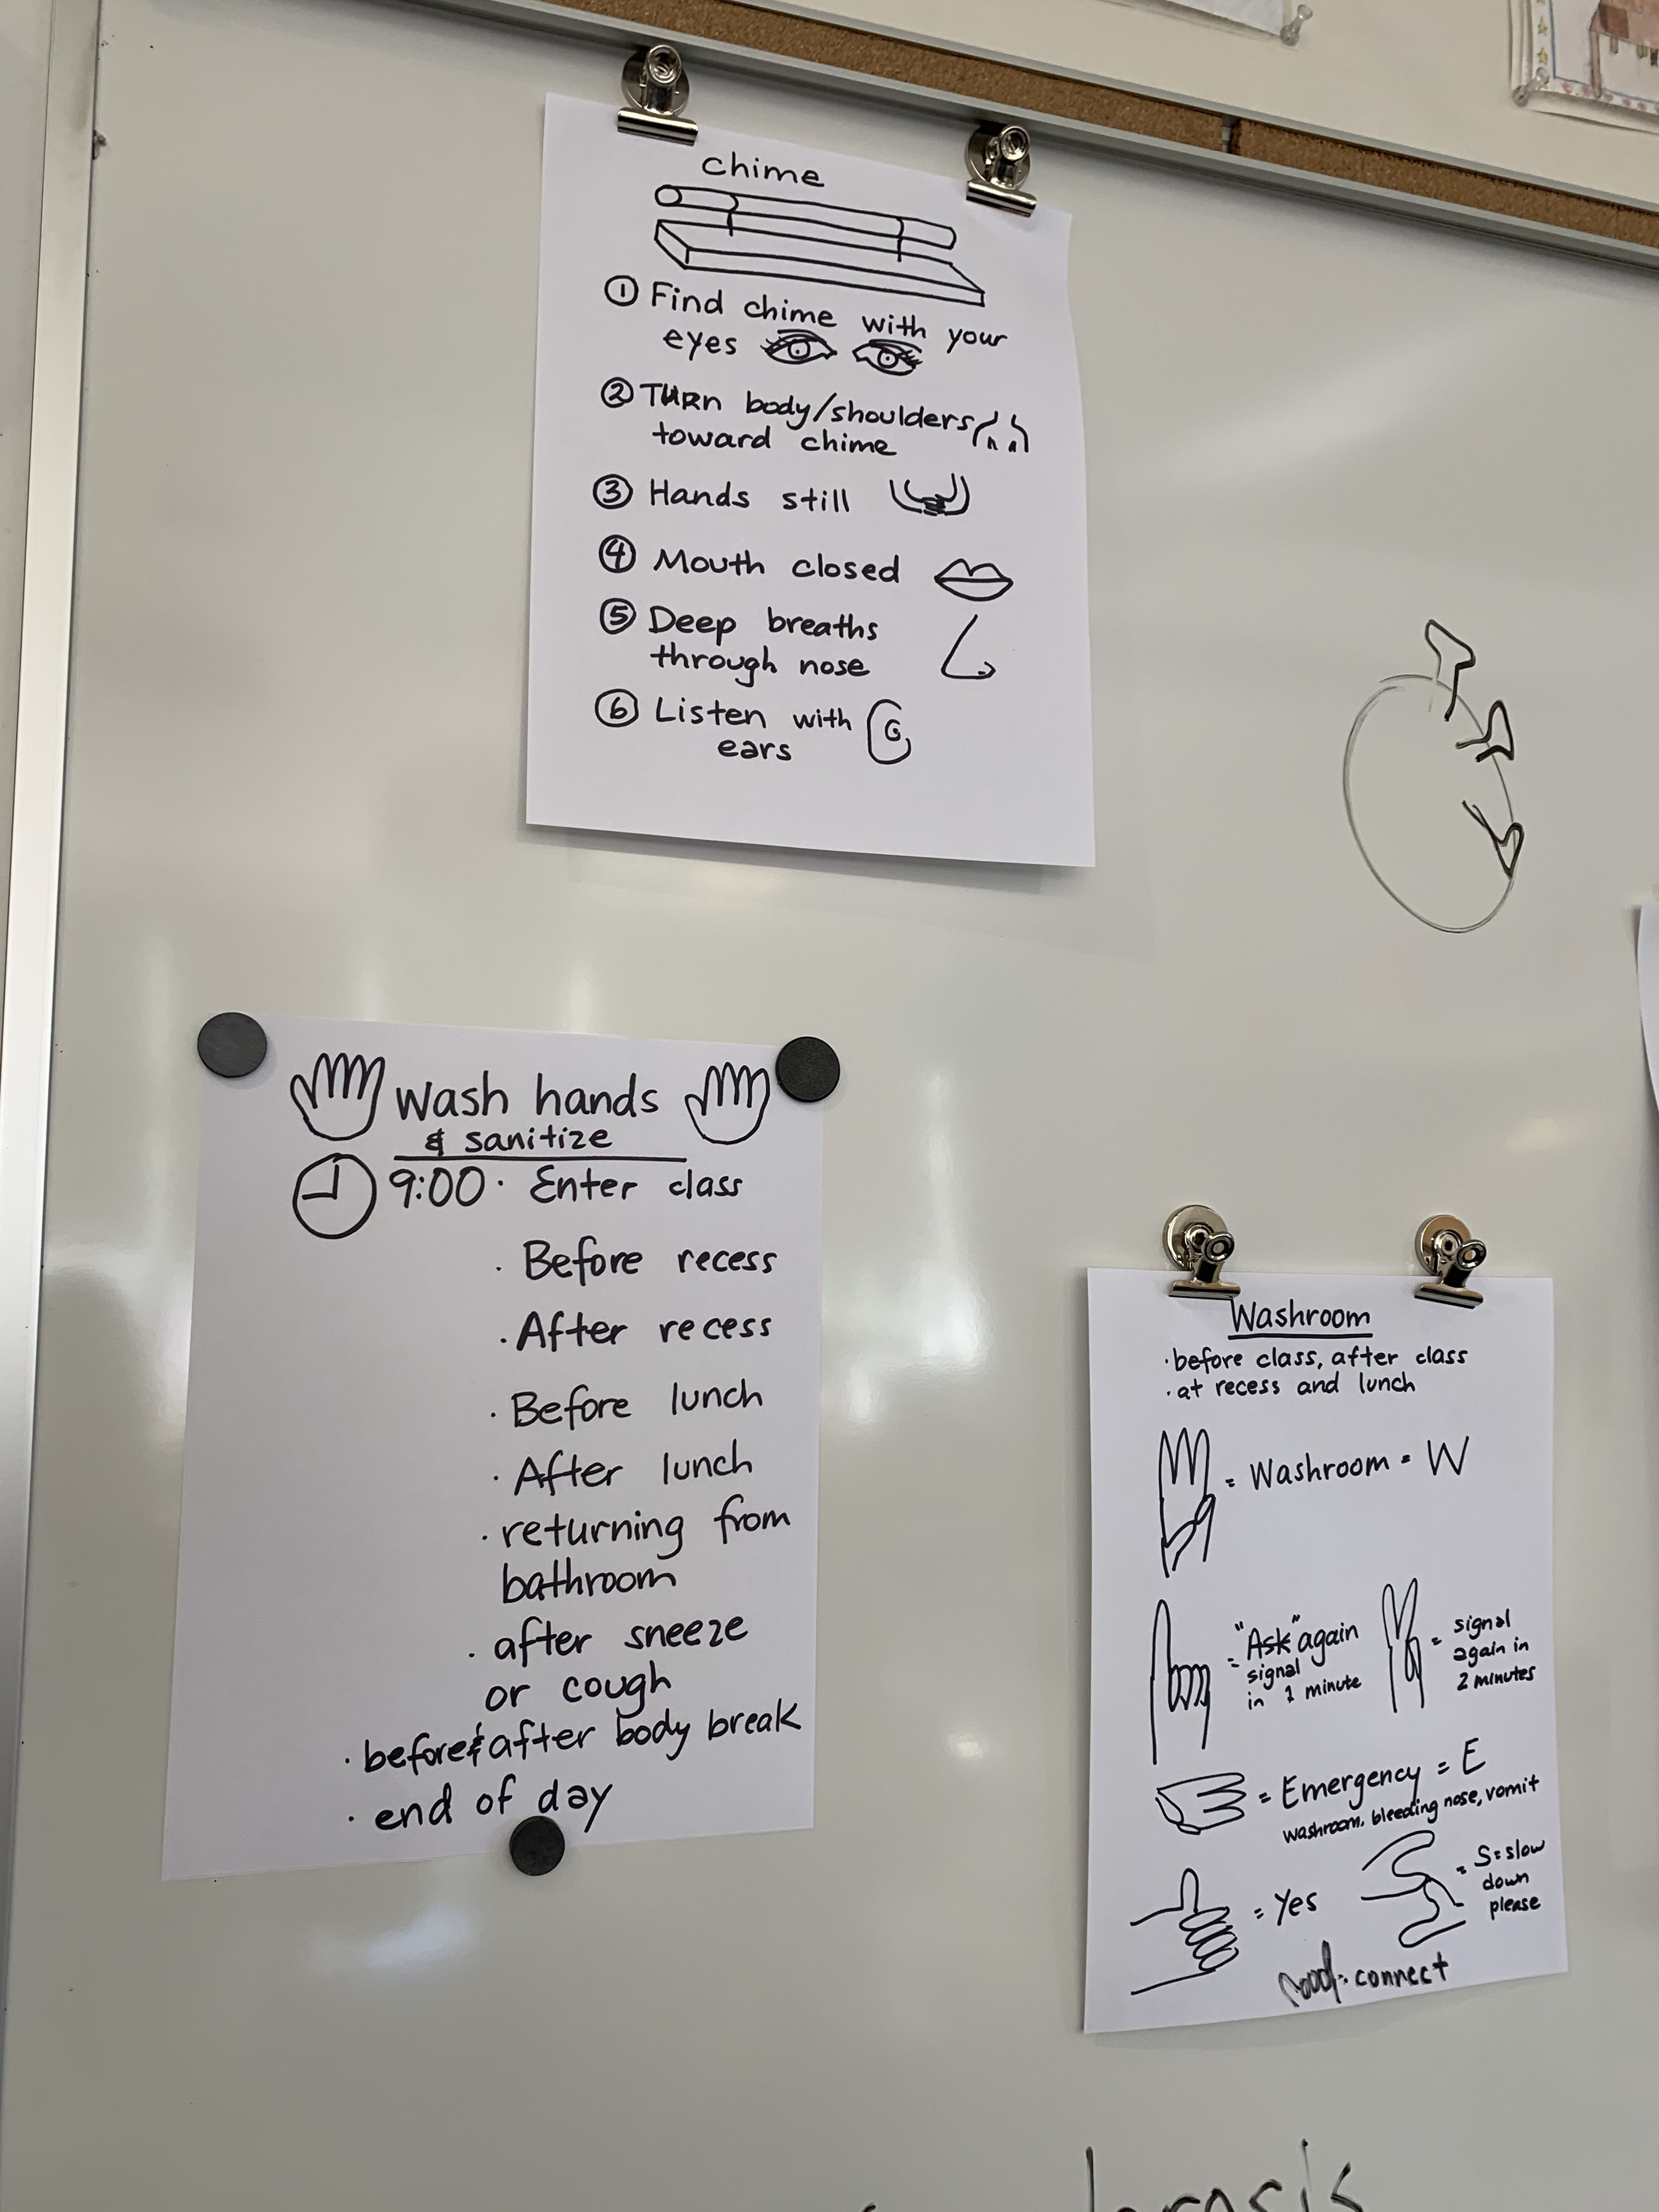 chime
① Find chime with your
eyes
② TURn body/shoulders
toward chime
③ Hands still
④ Mouth closed
⑤ Deep breaths
through nose
⑥ Listen with
ears
Wash hands
& sanitize
9:00 · Enter class
· Before recess
· After recess
· Before lunch
· After lunch
· returning from
bathroom
· after sneeze
or cough
· before & after body break
· end of day
Washroom
· before class, after class
· at recess and lunch
= Washroom = W
= "Ask" again
signal
in 1 minute
= signal
again in
2 minutes
= Emergency = E
washroom. bleeding nose, vomit
= Yes
= S = slow
down
please
= connect